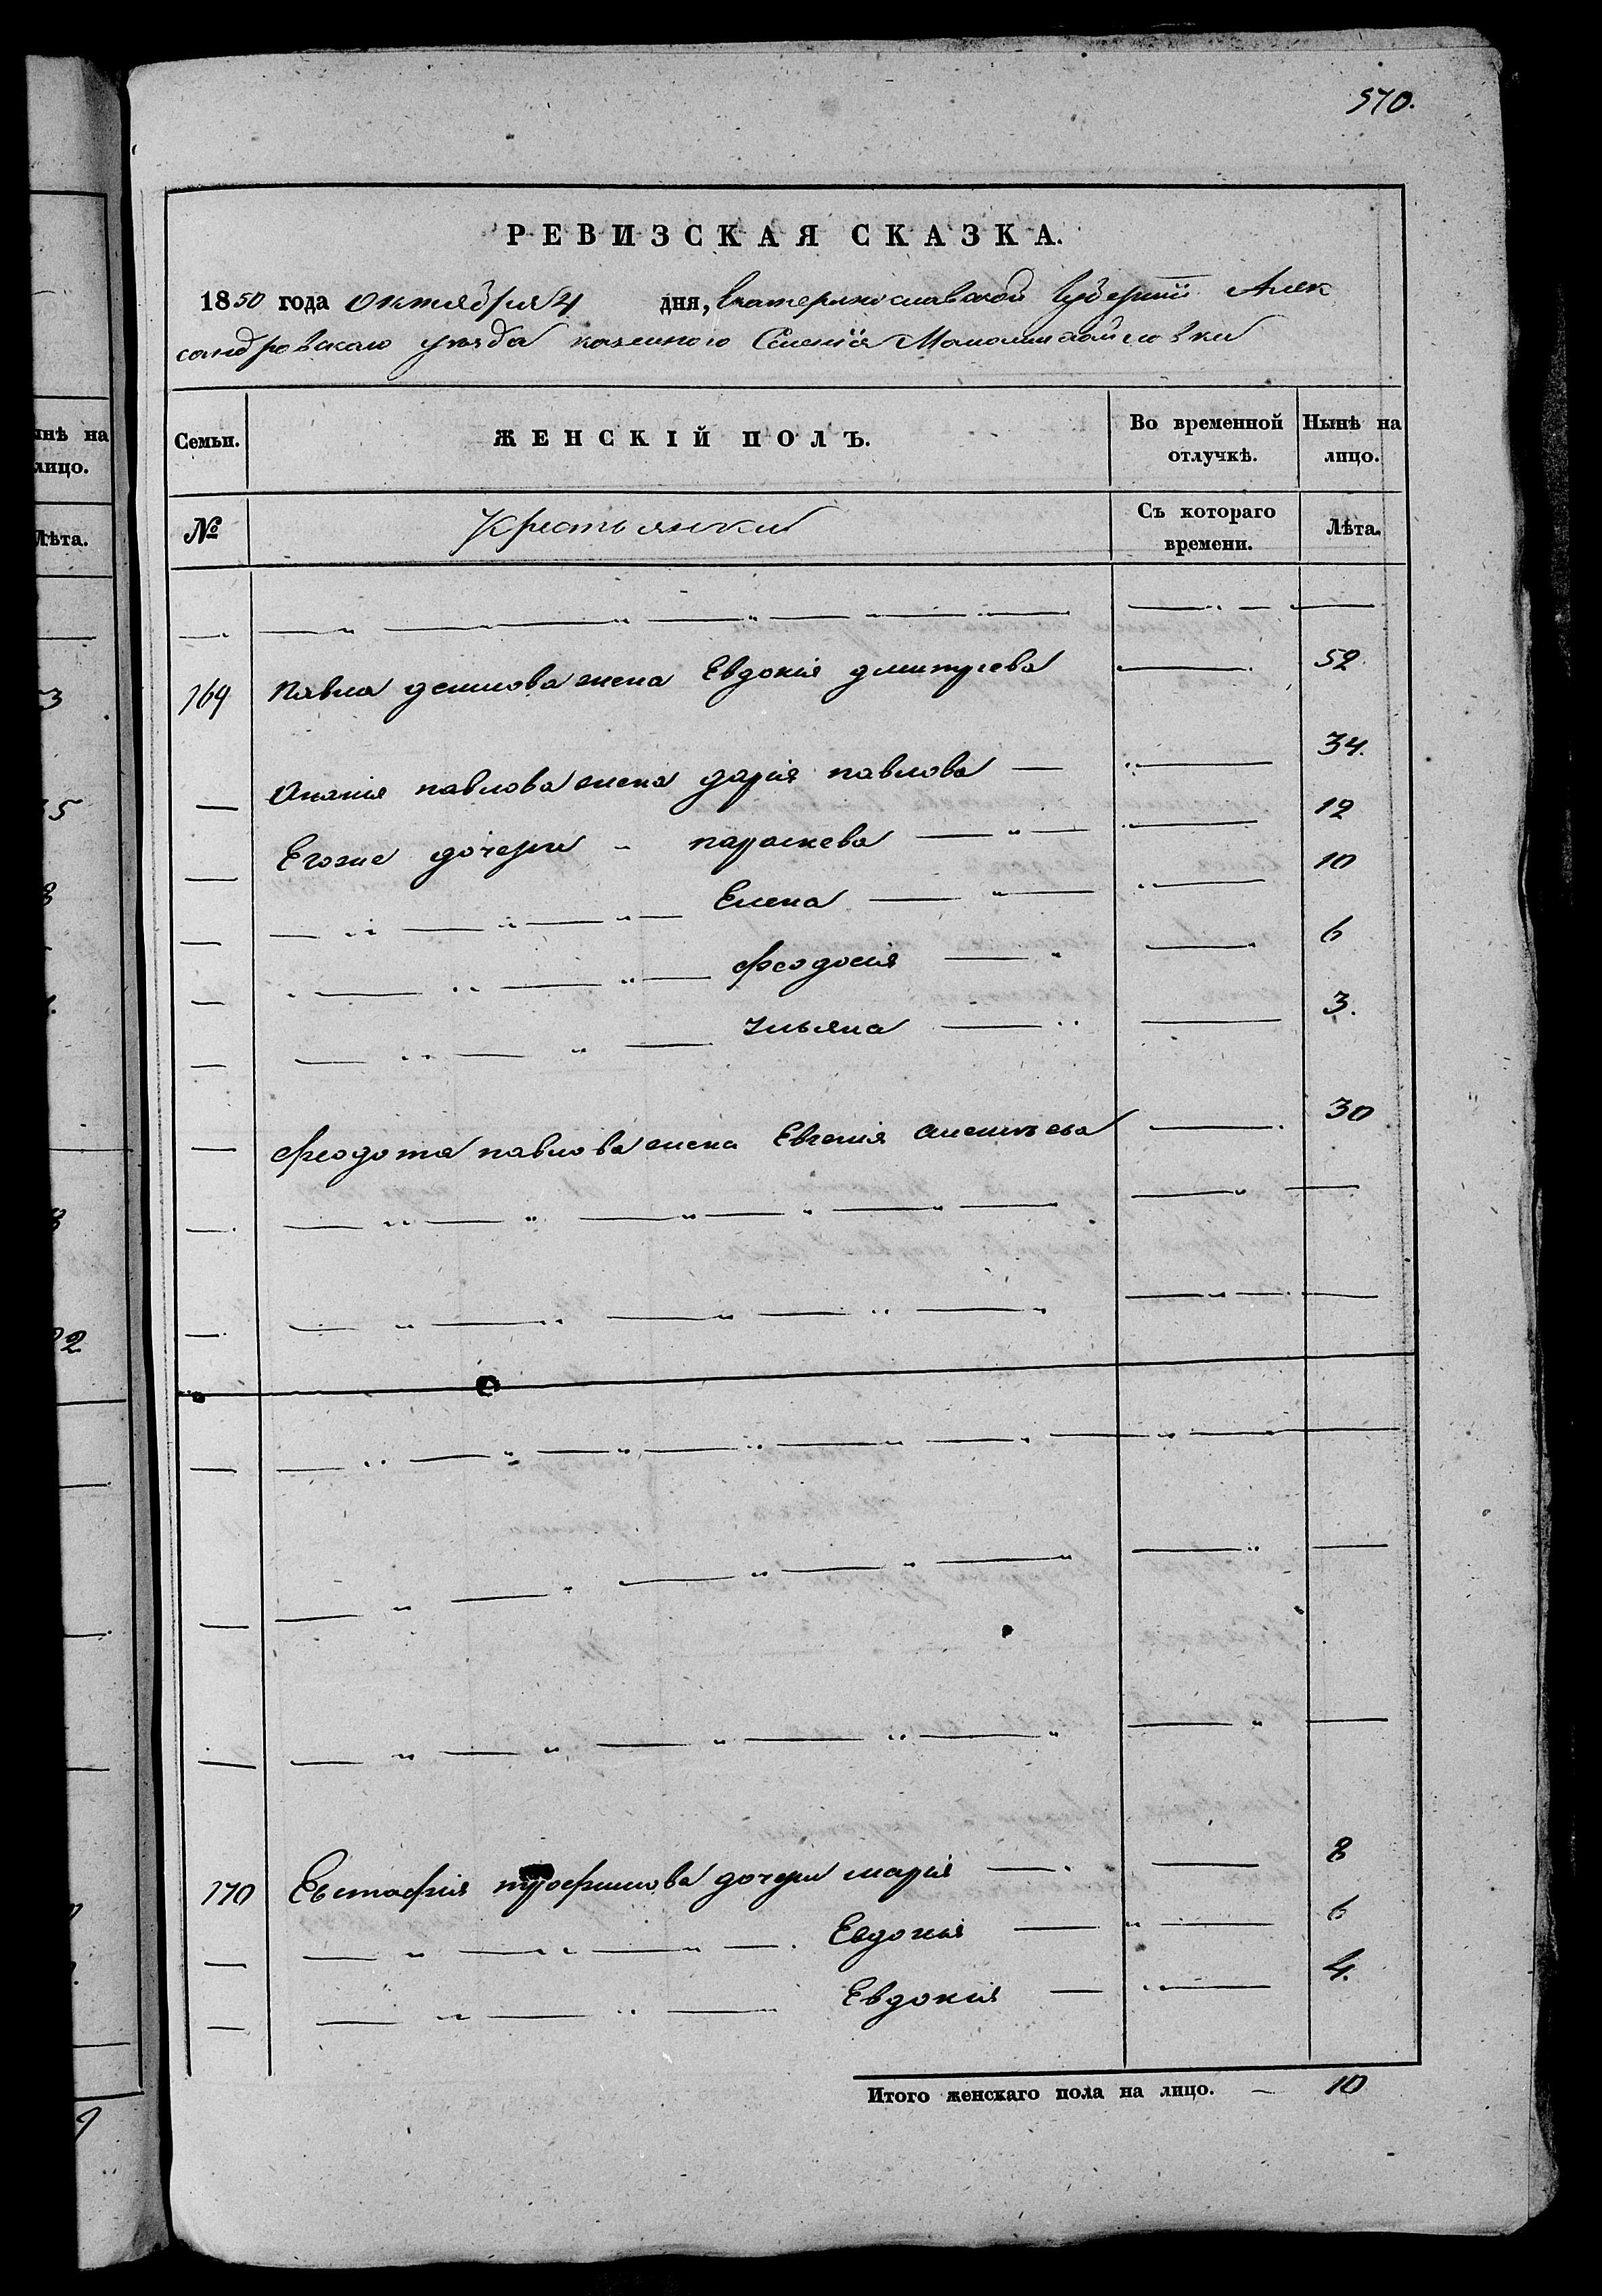 570.
РЕВИЗСКАЯ СКАЗКА.
1850 года Октября 4 дня, Екатеринославской Губернии Алек
сандровскаго уезда казенного Селенія Маломихайловки
Семьи. ЖЕНСКІЙ ПОЛЪ. Во временной отлучкѣ. Нынѣ на лицо.
№ Крестьянки Съ котораго времени. Лѣта.
169 Павла демиова жена Евдокія дмитриева 52.
Ананія павлова жена дарія павлова 34.
Егоже дочери параскева 12
Елена 10
Феодосія 6
Ульяна 3.
Феодота павлова жена Евгенія 30
170 Евстафія трофимова дочери марія 8
Евдокія 6
Евдокія 4.
Итого женскаго пола на лицо. 10
нѣ на
лицо.
Лѣта.
3
5
8
2